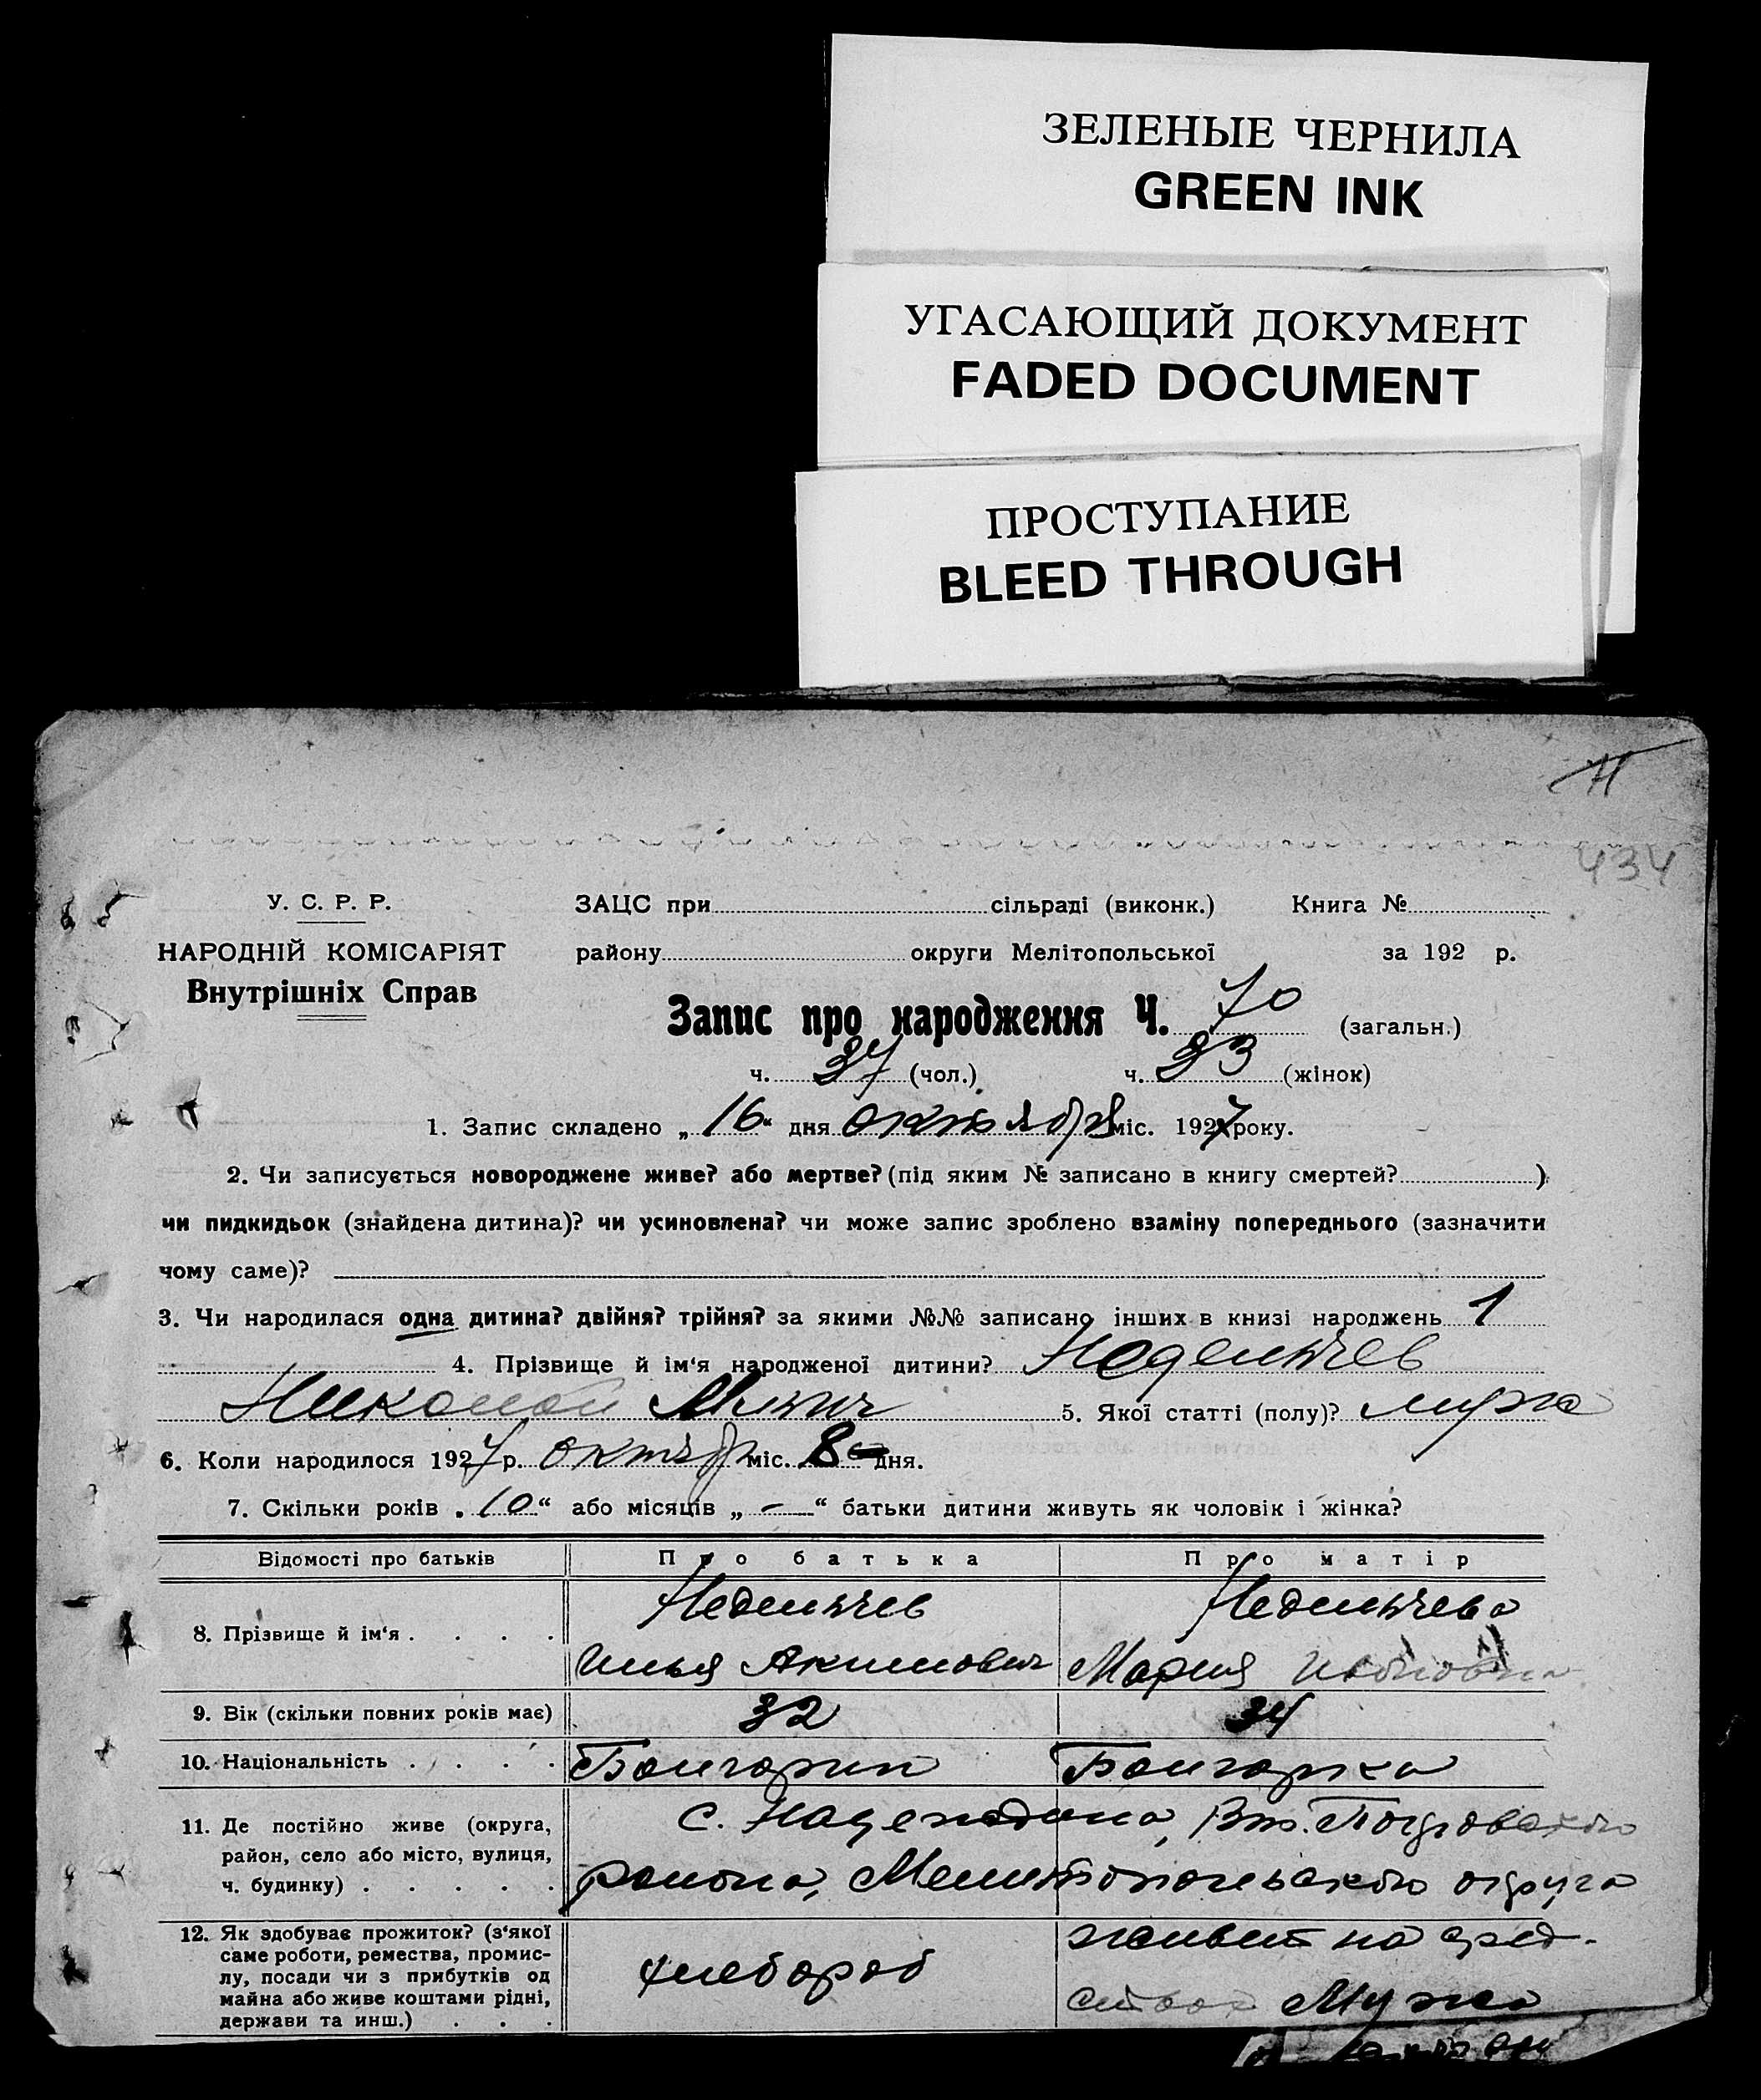 ЗЕЛЕНЫЕ ЧЕРНИЛА
GREEN INK
УГАСАЮЩИЙ ДОКУМЕНТ
FADED DOCUMENT
ПРОСТУПАНИЕ
BLEED THROUGH
434
У. С. Р. Р.
НАРОДНІЙ КОМІСАРІЯТ
Внутрішніх Справ
ЗАЦС при сільраді (виконк.) Книга №
району округи Мелітопольської за 192 р.
Запис про народження Ч. 70 (загальн.)
ч. 37 (чол.) ч. 33 (жінок)
1. Запис складено „16“ дня октября міс. 1927 року.
2. Чи записується новороджене живе? або мертве? (під яким № записано в книгу смертей? )
чи пидкидьок (знайдена дитина)? чи усиновлена? чи може запис зроблено взаміну попереднього (зазначити
чому саме)?
3. Чи народилася одна дитина? двійня? трійня? за якими №№ записано інших в книзі народжень 1
4. Прізвище й ім‘я народженої дитини? Недельчев
Николай Ильич 5. Якої статті (полу)? мужа
6. Коли народилося 1927 р. октябр міс. 8 дня.
7. Скільки років „10“ або місяців „-“ батьки дитини живуть як чоловік і жінка?
Відомості про батьків Про батька Про матір
8. Прізвище й ім‘я . . . .
Недельчев Недельчева
Илья Акимович Мария
9. Вік (скільки повних років має) 32 34
10. Національність . . . . Болгарин Болгарка
11. Де постійно живе (округа,
район, село або місто, вулиця,
ч. будинку) . . . . .
с. Надеждина, Вт. Покровского
района, Мелитопольского округа
12. Як здобуває прожиток? (з‘якої
саме роботи, ремества, промис-
лу, посади чи з прибутків од
майна або живе коштами рідні,
держави та инш.) . . .
хлебороб
живет на сред-
ствах Мужа